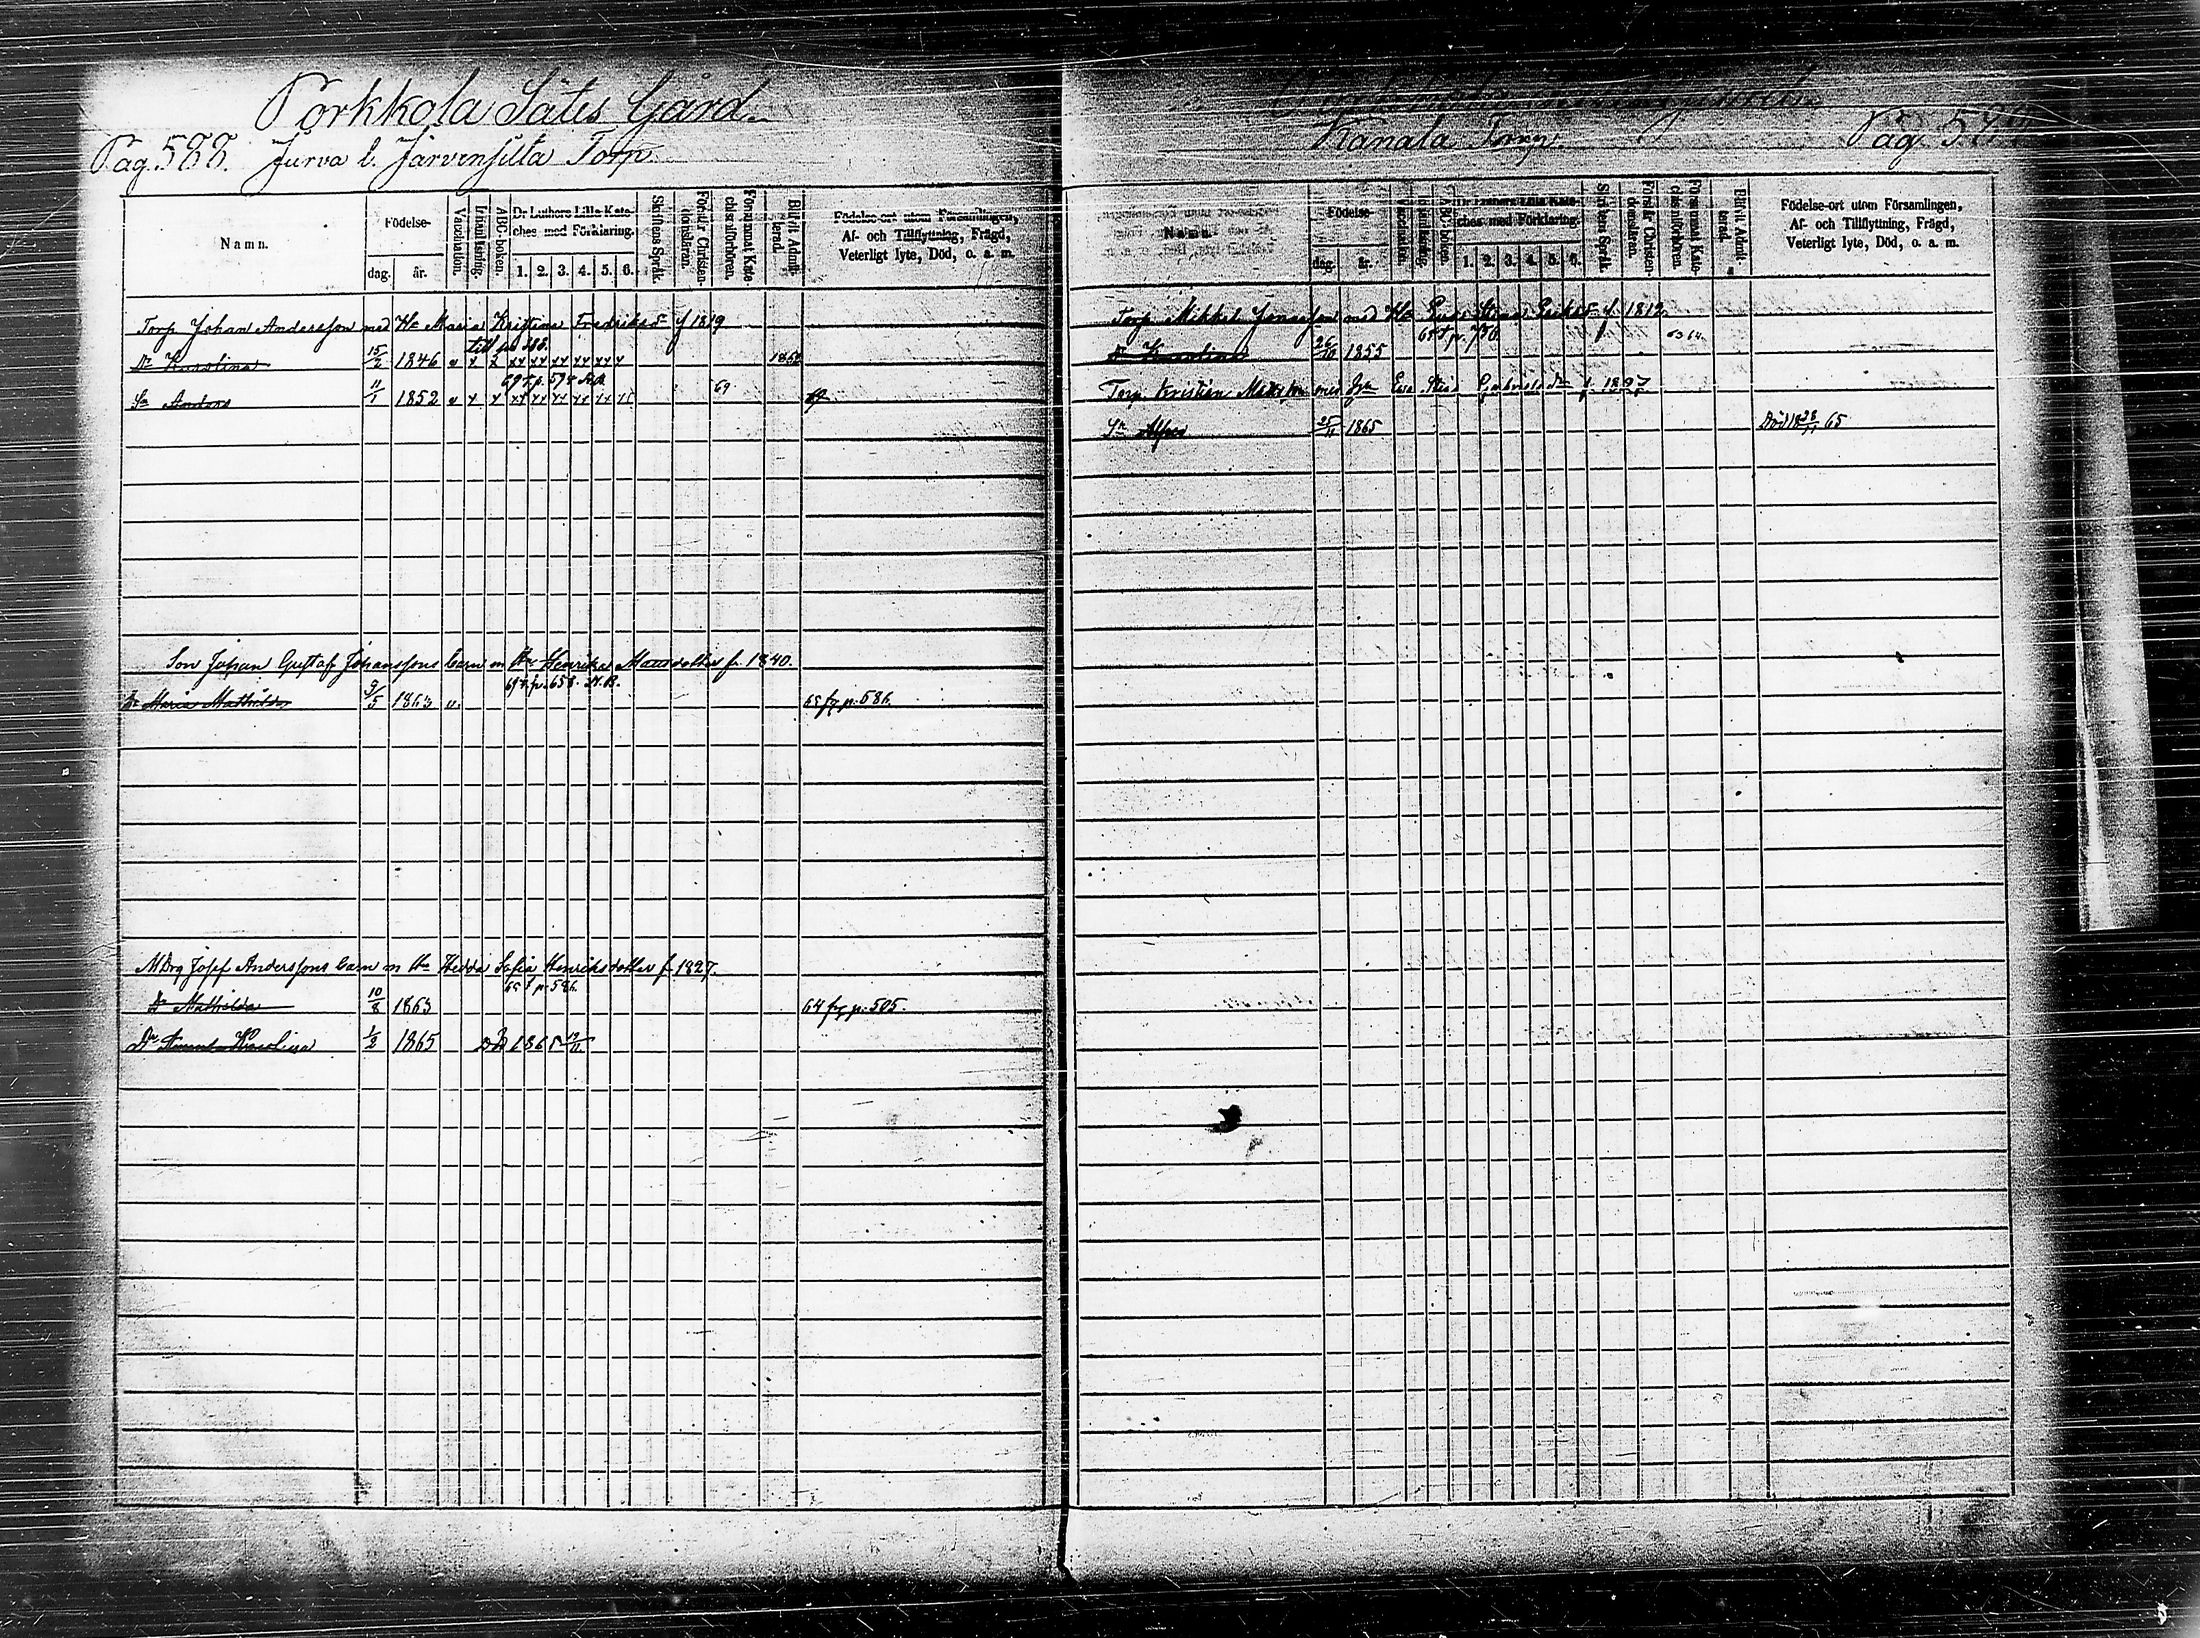 Porkkola Sätes Gård.
Pag. 588. Jurva l. Järvensilta Torp.
Namn.
Födelse-
dag.
år.
Vaccination.
Innanläsning.
ABC-boken.
Dr Luthers Lilla Kate-
ches med Förklaring.
1. 2. 3. 4. 5. 6.
Skriftens Språk.
Förstår Christen-
domsläran.
Försummat Kate-
chismiförhören.
Blifvit Admit-
terad.
Födelse-ort utom Församlingen,
Af- och Tillflyttning, Frägd,
Veterligt lyte, Död, o. a. m.
Torp. Johan Andersson med Hu Maria Kristina Fredriksd f 1819
Dr Karolina 15/2 1846
Sn Anders 11/1 1852 69
Son Johan Gustaf Johanssons barn m Hu Henrika Mattsdotter f. 1840.
69 t. p. 658. N.B.
Dr Maria Mathilda 9/5 1863 v. 65 fr p. 586.
MDrg Josef Anderssons barn m Hu Hedda Sofia Henriksdotter f. 1827.
65 t p. 586.
Dr Mathilda 10/8 1863 64 fr p. 505.
Dr Karolina 1/2 1865
Kanala Torp.
Pag.
Namn.
Födelse-
dag.
år.
Vaccination.
Innanläsning.
ABC-boken.
Dr Luthers Lilla Kate-
ches med Förklaring.
1. 2. 3. 4. 5. 6.
Skriftens Språk.
Förstår Christen-
domsläran.
Försummat Kate-
chismiförhören.
Blifvit Admit-
terad.
Födelse-ort utom Församlingen,
Af- och Tillflyttning, Frägd,
Veterligt lyte, Död, o. a. m.
Torp. Mikkel Jonasson med Hu Eva f. 1812
Dr Karolina 26/10 1855
Torp. Kristian med Hu Eva Gabrielsdr f.
Sn Alfred 25/11 1865 Död 65